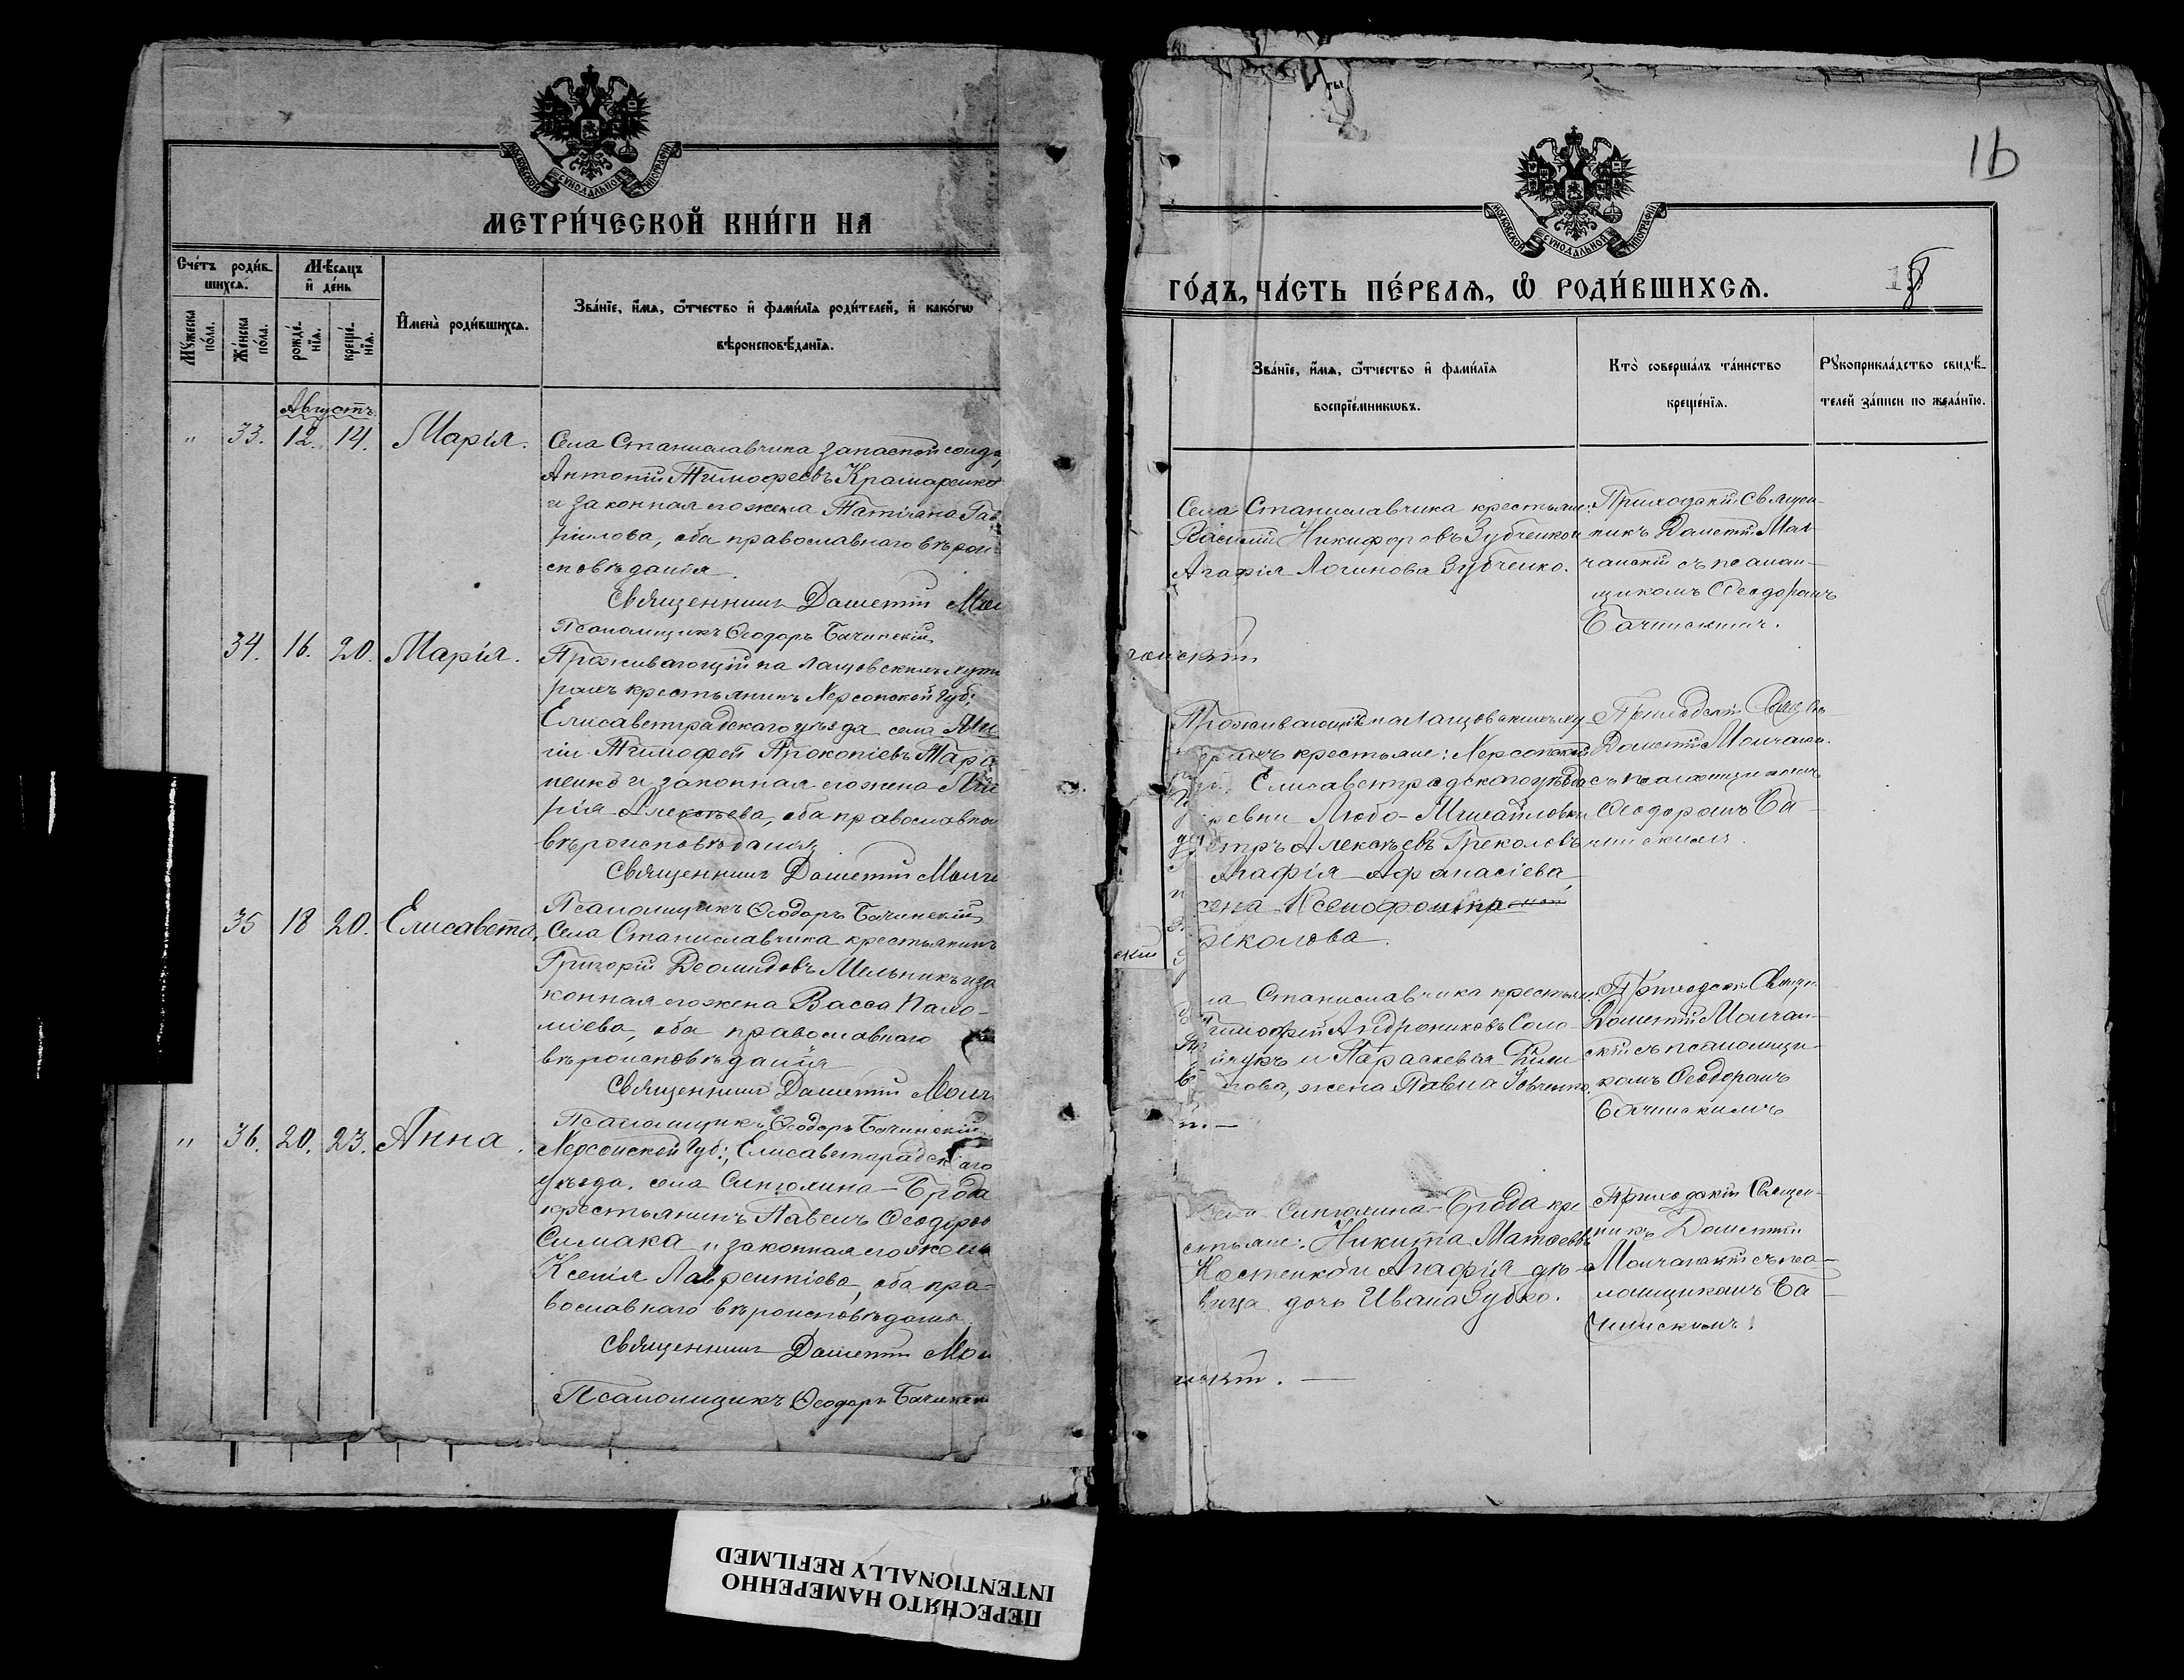 МОСКОВСКОЙ СѴНОДАЛЬНОЙ ТИПОГРАФІИ
МЕТРИ́ЧЕСКОЙ КНИ́ГИ НА
Сче́тъ роди́в-
шихсѧ.
Мѣ́сѧцъ
и҆ де́нь
Мꙋ́жеска
по́ла.
Же́нска
по́ла.
рожде́-
нїѧ.
креще́-
нїѧ.
И҆мена̀ роди́вшихсѧ.
Зва́нїе, и҆́мѧ, ѻ҆́тчество и҆ фами́лїѧ роди́телей, и҆ како́гѡ
вѣроисповѣ́данїѧ.
Августъ.
" 33. 12. 14. Марія.
Села Станиславчика запасной солда
Антоній Тимофеевъ Крамаренко
и законная его жена Татіана Гав
ріилова, оба православнаго вѣрои-
сповѣданія.
Священникъ Дометій Мол
Псаломщикъ Ѳеодоръ Бачинскій
34. 16. 20. Марія.
Проживающій на Лащовскихъ хуто
рахъ крестьянинъ Херсонской губ.
Елисаветградскаго уѣзда села
Тимофей Прокопіевъ
и законная его жена Ма
рія Алексѣева, оба православнаго
вѣроисповѣданія
Священникъ Дометій Молч
Псаломщикъ Ѳеодоръ Бачинскій
35 18 20. Елисавета.
Села Станиславчика крестьянинъ
Григорій Деомидовъ Мельникъ и за
конная его жена Васса Пахо-
міева, оба православнаго
вѣроисповѣданія
Священникъ Дометій Молч
Псаломщикъ Ѳеодоръ Бачинскій
" 36. 20. 23. Анна.
Херсонской губ., Елисаветградскаго
уѣзда, села Синюхина-Брода
крестьянинъ Павелъ Ѳеодоров
Симака и законная его жена
Ксенія Лаврентіева, оба пра-
вославнаго вѣроисповѣданія
Священникъ Дометій Мол
Псаломщикъ Ѳеодоръ Бачинскій
16
МОСКОВСКОЙ СѴНОДАЛЬНОЙ ТИПОГРАФІИ
ГО́ДЪ, ЧА́СТЬ ПЕ́РВАѦ, Ѡ҆ РОДИ́ВШИХСѦ.
Зва́нїе, и҆́мѧ, ѻ҆́тчество и҆ фами́лїѧ
воспрїе́мникѡвъ.
Кто̀ соверша́лъ та́инство
креще́нїѧ.
Рꙋкоприкла́дство свидѣ́-
телей за́писи по жела́нїю.
Села Станиславчика крестьяне:
Василій Никифоровъ Зубченко и
Агафія Логинова Зубченко.
Приходскій Священ-
никъ Дометій Мол-
чанскій съ псалом-
щикомъ Ѳеодоромъ
Бачинскимъ.
чанскій
Проживающіе на Лащовскихъ ху-
торахъ крестьяне: Херсонской
Елисаветградскаго уѣзда
ревни Любо-Михайловки
Петръ Алексѣевъ Грековъ
Агафія Афанасіева
жена Ксенофонта
Грекова.
Приходскій Свящ.
Дометій Молчанск.
съ псаломщикомъ
Ѳеодоромъ Ба-
чинскимъ.
скій
ла Станиславчика крестьяне:
Тимофей Андрониковъ Соло-
и Параскевія
жена Павла Зовченко.
Приходскій Священ.
Дометій Молчан-
скій съ псаломщи-
комъ Ѳеодоромъ
Бачинскимъ
Села Синюхина-Брода кре
стьяне: Никита Матѳеевъ
Костенко и Агафія дѣ-
вица дочь Ивана Зубко.
Приходскій Священ-
никъ Дометій
Молчанскій съ пса-
ломщикомъ Ба-
чинскимъ.
ПЕРЕСНЯТО НАМЕРЕННО
INTENTIONALLY REFILMED